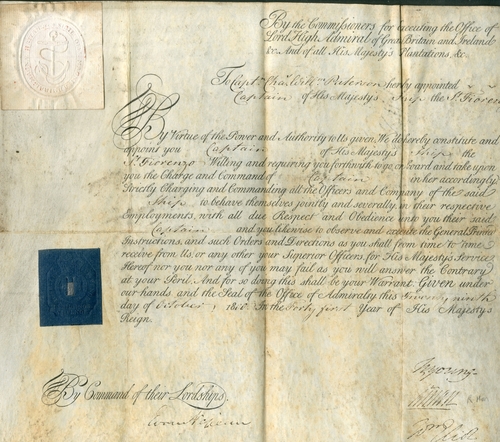 By the Commissioners for executing the Office of
Lord High Admiral of Great Britain and Ireland
&c. And of all His Majesty's Plantations, &c.
To Captn. Chas. Willm. Paterson hereby appointed
Captain of His Majesty's Ship the St. Fiorenzo
By Virtue of the Power and Authority to Us given, We do hereby constitute and
appoint you Captain of His Majesty's Ship the
St. Fiorenzo Willing and requiring you forthwith to go on board and take upon
you the Charge and Command of Captain in her accordingly.
Strictly Charging and Commanding all the Officers and Company of the said
Ship to behave themselves jointly and severally in their respective
Employments, with all due Respect and Obedience unto you their said
Captain and you likewise to observe and execute the General Printed
Instructions, and such Orders and Directions as you shall from time to time
receive from Us, or any other your Superior Officers, for His Majesty's Service.
Hereof nor you nor any of you may fail as you will answer the Contrary
at your Peril. And for so doing this shall be your Warrant. Given under
our hands, and the Seal of the Office of Admiralty this Twenty ninth
day of October, in the Forty first Year of His Majesty's
Reign.
By Command of their Lordships,
Young